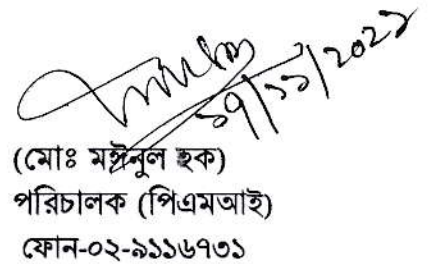 ১৭/১১/২০২১
(মোঃ মঈনুল হক)
পরিচালক (পিএমআই)
ফোন-০২-৯১১৬৭৩১